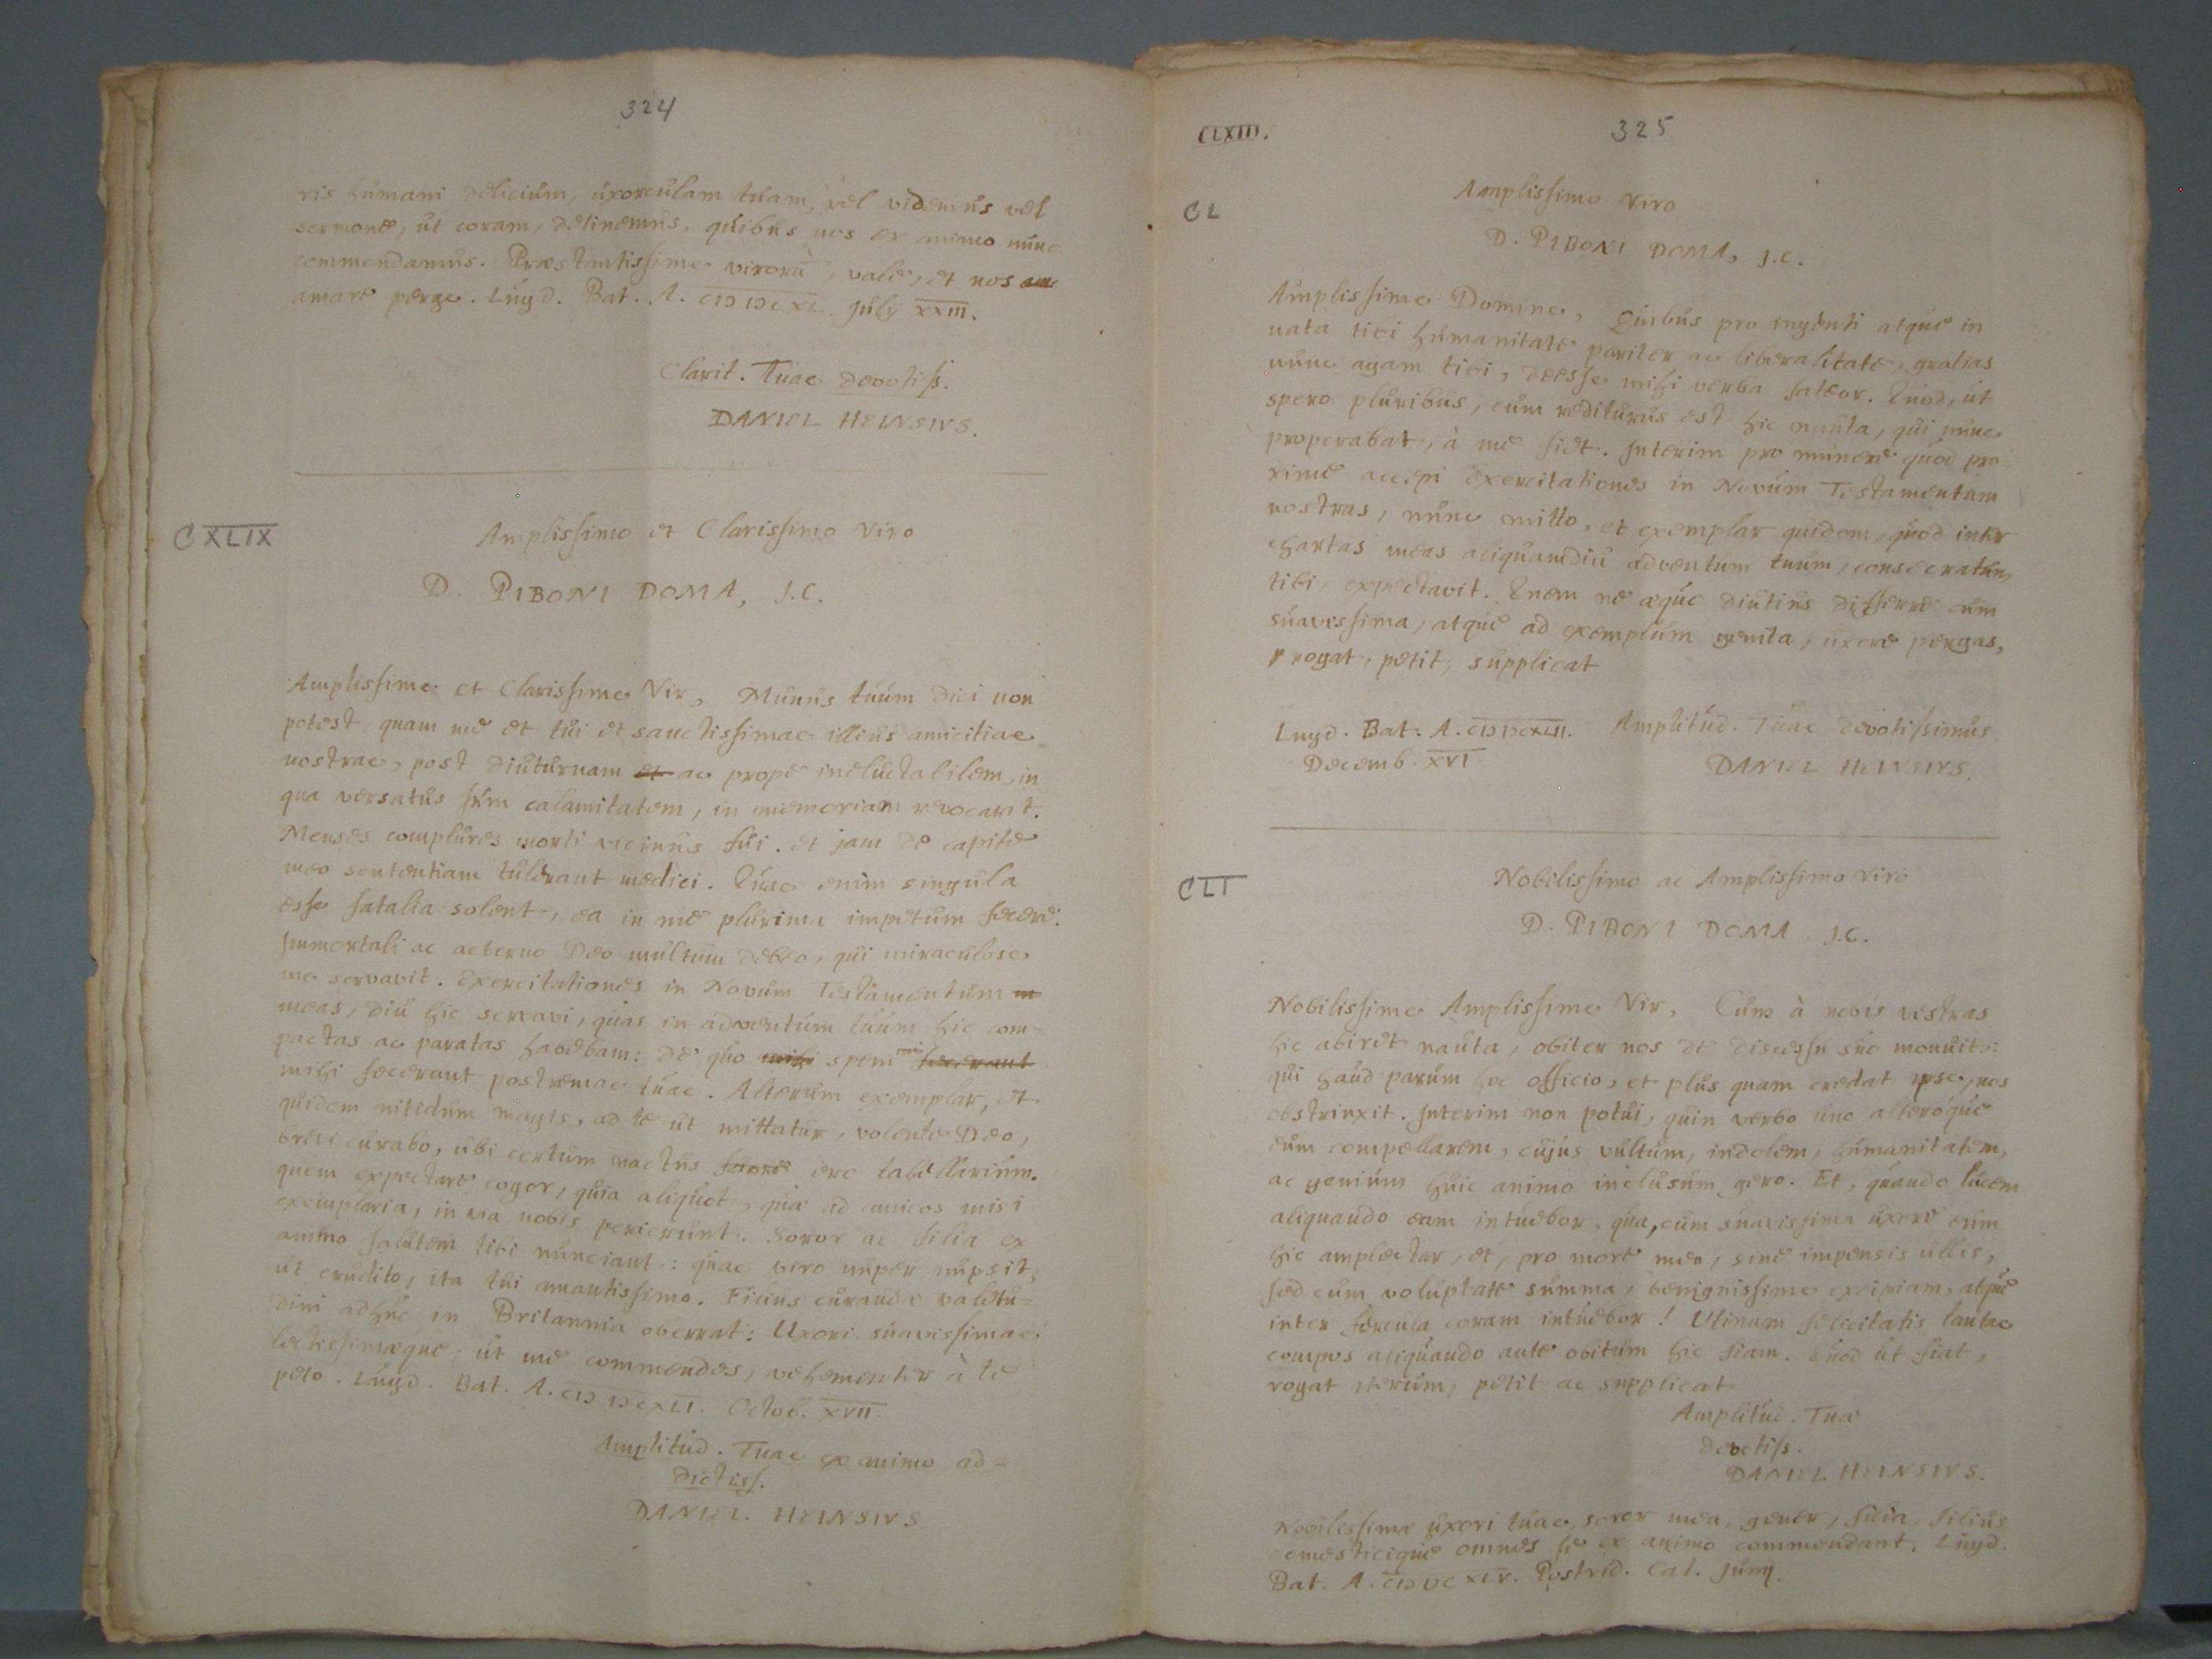 324
ris humani delicium, uxorculam tuam, vel videmus vel
sermone, ut coram, detinemus, quibus nos ex animo nunc
commendamus. Præstantissime virorũ, vale, et nos
amare perge. Lugd. Bat. A. CIↃ IↃC XL. Julij XXIII.
Clarit. Tuae devotiss.
DANIEL HEINSIVS.
CXLIX
Amplissimo et Clarissimo Viro
D. PIBONI DOMA, J.C.
Amplissime et Clarissime Vir, Munus tuum dici non
potest, quam me et tui et sanctissimae illius amicitiae
nostrae, post diuturnam et ac prope ineluctabilem, in
qua versatus sum calamitatem, in memoriam revocarit.
Menses complures morti vicinus fui. et jam de capite
meo sententiam tulerant medici. Quae enim singula
esse fatalia solent, ea in me plurima impetum fecere.
Immortali ac aeterno Deo multum debeo, qui miraculose
me servavit. Exercitationes in Novum Testamentum
meas, diu hic servavi, quas in adventum tuum hic com=
pactas ac paratas habebam: de quo mihi spem fecerant
mihi fecerant postremae tuae. Alterum exemplar, et
quidem nitidum magis, ad te ut mittatur, volente Deo,
brevi curabo, ubi certum nactus fuero ero tabellarium.
quem expectare cogor, quia aliquot, quæ ad amicos misi
exemplaria, in via nobis perierunt. Soror ac filia ex
animo salutem tibi nunciant: quae viro nuper nupsit,
ut erudito, ita tui amantissimo. Filius curandæ valetu=
dini adhuc in Britannia oberrat: Uxori suavissimae
lectissimæque, ut me commendes, vehementer à te
peto. Lugd. Bat. A. CIↃ IↃCXLI. Octob. XVII.
Amplitud. Tuae ex animo ad=
dictiss.
DANIEL HEINSIVS
CLXIII.
325
CL
Amplissimo Viro
D. PIBONI DOMA, J.C.
Amplissime Domine, Quibus pro ingenti atque in
nata tibi humanitate pariter ac liberalitate, gratias
nunc agam tibi, deesse mihi verba fateor. Quod, ut
spero pluribus, cum rediturus est hic nauta, qui nunc
properabat, à me fiet. Interim pro munere quod pro
xime accepi Exercitationes in Novum Testamentum
nostras, nunc mitto, et exemplar quidem, quod inter
chartas meas aliquamdiu adventum tuum, consecratum
tibi, expectavit. Quem ne æque diutius differre cum
suavissima, atque ad exemplum genita, uxore pergas,
rogat, petit, supplicat
Lugd. Bat. A. CIↃ IↃCXLII. Amplitud. Tuae devotissimus
Decemb. XVI. DANIEL HEINSIVS.
CLI
Nobilissimo ac Amplissimo Viro
D. PIBONI DOMA, J.C.
Nobilissime Amplissime Vir, Cum à nobis vestras
hic abiret nauta, obiter nos de discessu suo monuit:
qui haud parum hoc officio, et plus quam credat ipse, nos
obstrinxit. Interim non potui, quin verbo uno alteroque
eum compellarem, cujus vultum, indolem, humanitatem,
ac genium huic animo inclusum gero. Et, quando lucem
aliquando eam intuebor, qua, cum suavissima uxore eum
hic amplectar, et, pro more meo, sine impensis ullis,
sed cum voluptate summa, benignissime excipiam, atque
inter fercula coram intuebor! Utinam felicitatis tantae
compos aliquando ante obitum hic fiam. Quod ut fiat,
rogat iterum, petit ac supplicat
Amplitud. Tuæ
devotiss.
DANIEL HEINSIVS.
Nobilissimæ uxori tuae, soror mea, gener, filia, filius
domesticique omnes se ex animo commendant. Lugd.
Bat. A. CIↃ IↃC XLV. Postrid. Cal. Junij.